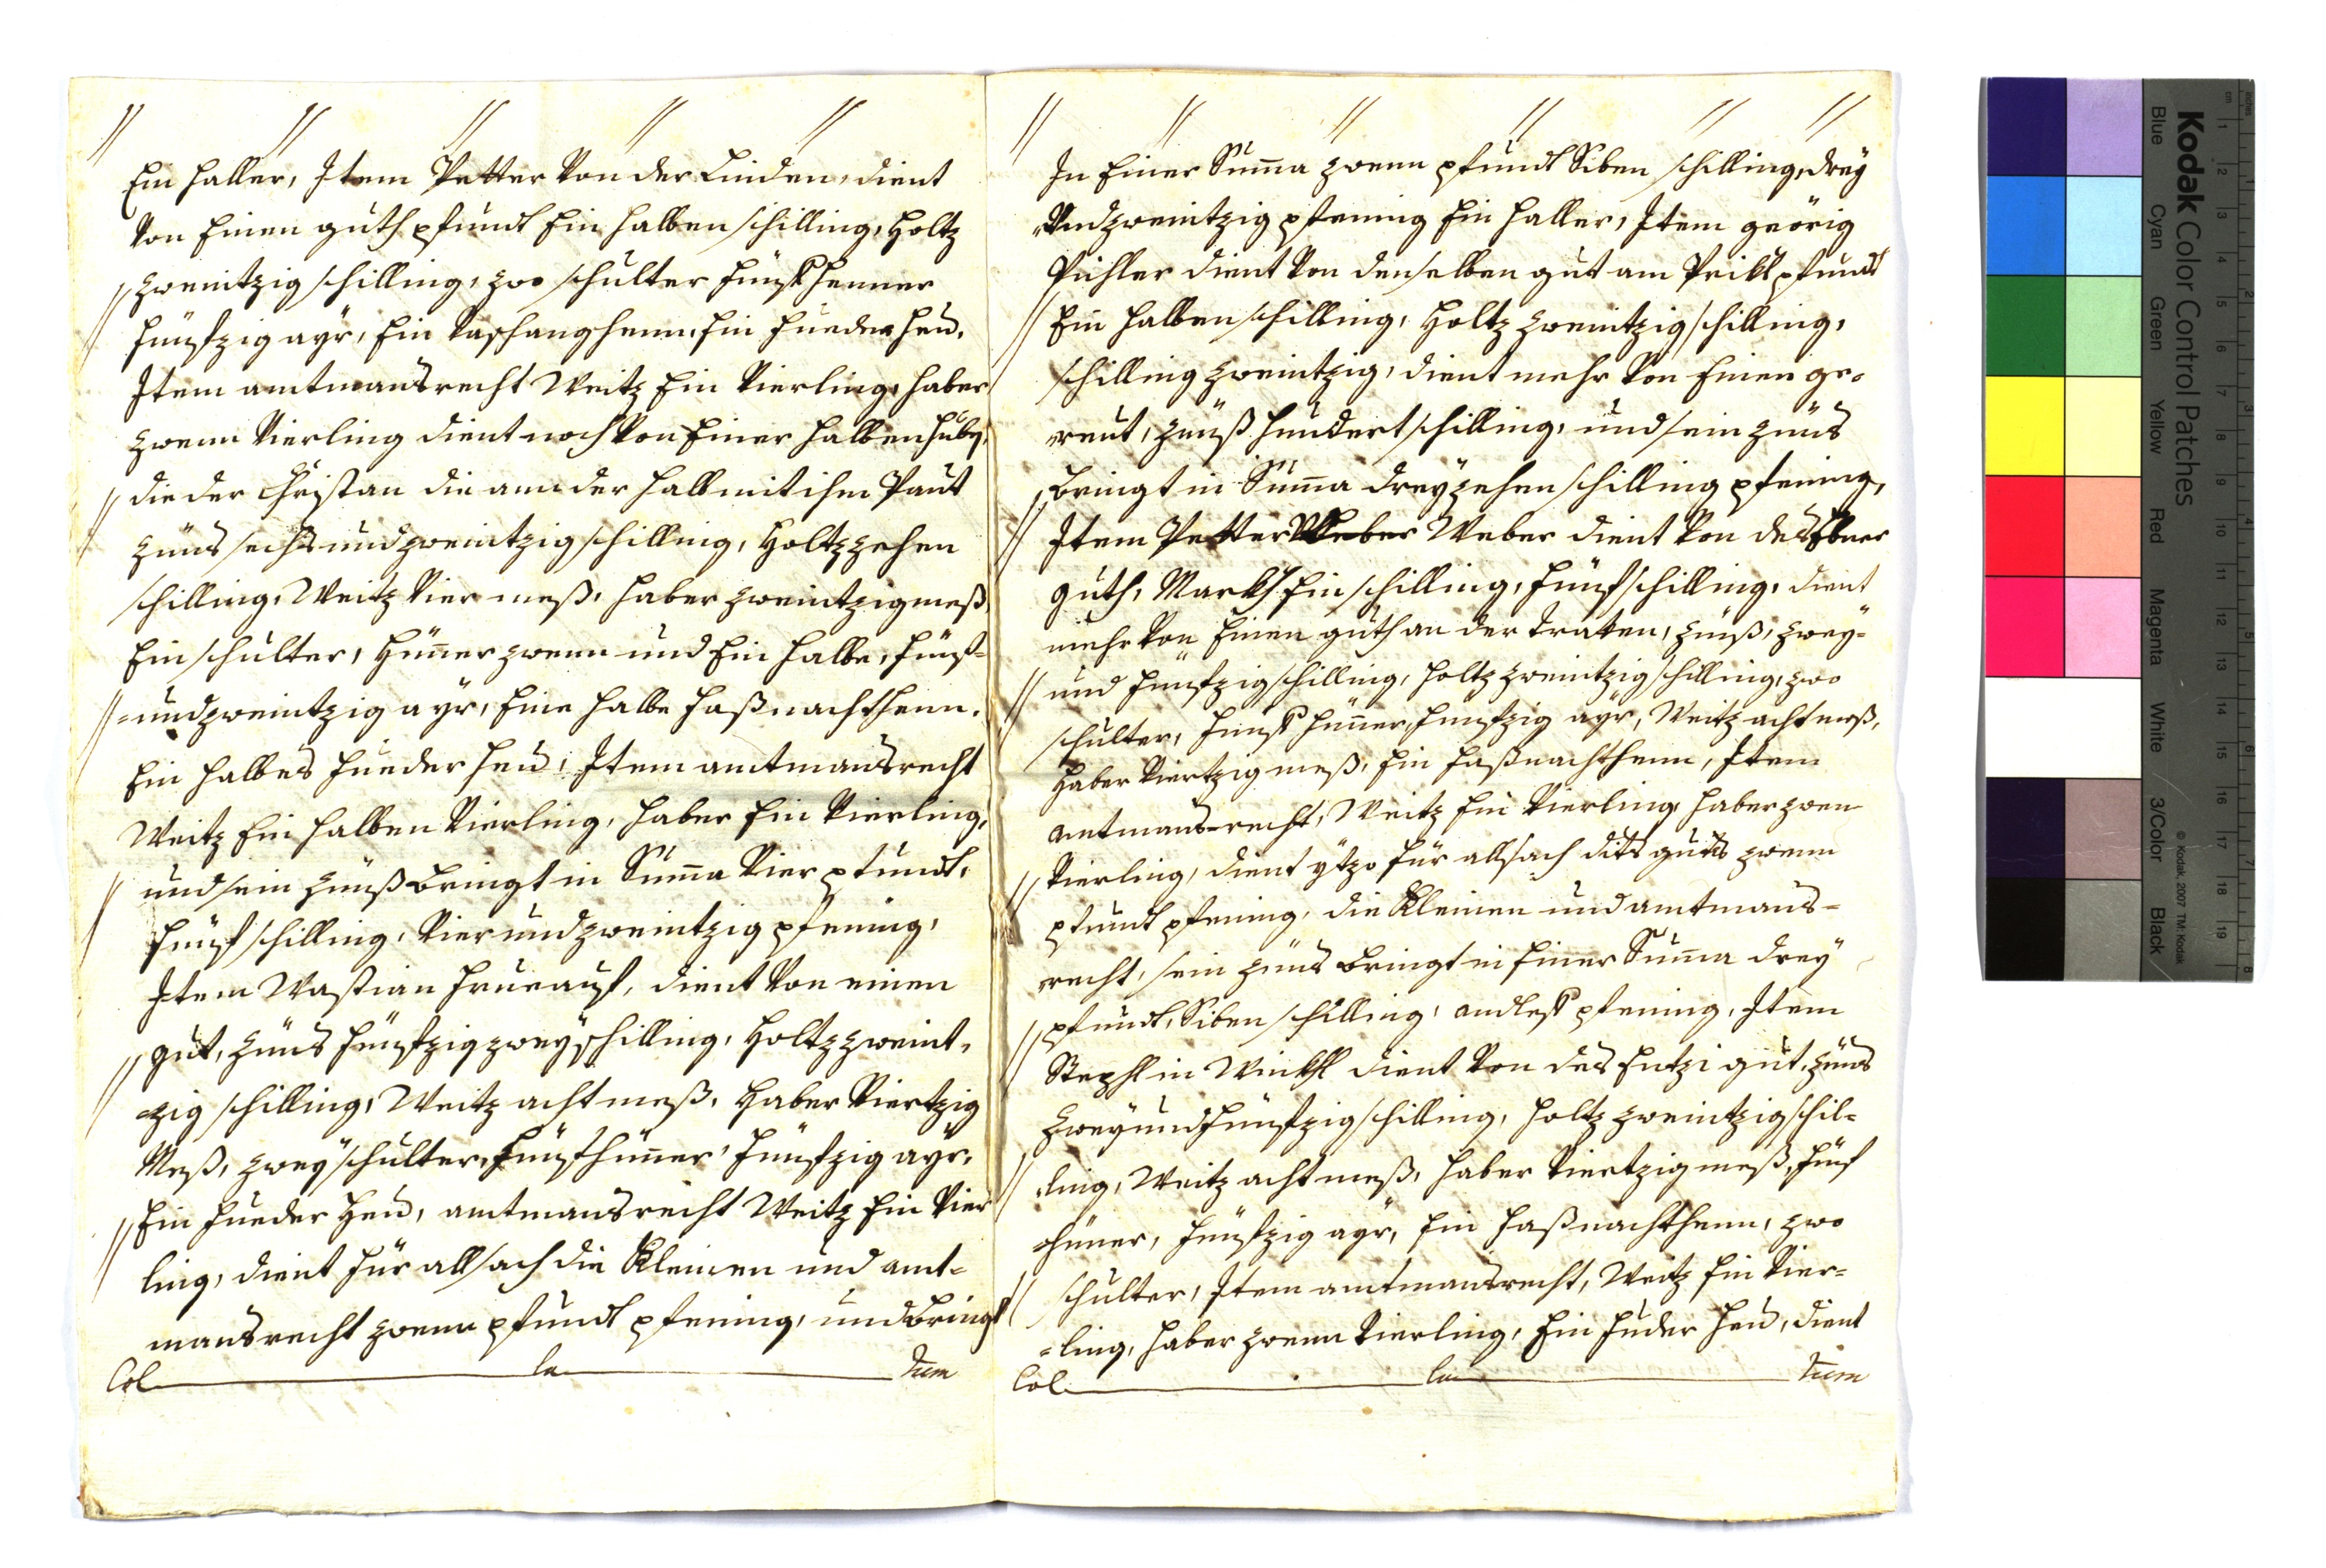 Ein haller, Item Petter von der Linden, dient
von Einen guth pfundt Ein halben schilling, Holtz
zweintzig schilling, zwo schulter fünff henner
fünfzig ayr, Ein Vaschanghenn, Ein fueder heu,
Item amtmansrecht Weitz Ein Vierling, haber
zwenn Vierling dient noch von Einer halben hueb,
die der Christan die ann der halb mit ihm Paut
züns sechs und zweintzig schilling, Holtz zehen
schilling, Weitz Vier meß, haber zweintzig meß
Ein schulter, Hüner zwenn und Ein halbe, fünff=
=undzweintzig ayr, Eine halbe Faßnachthenn,
Ein halbes fueder heu, Item amtmansrecht
Weitz Ein halben Vierling, haber Ein Vierling,
und sein zünß bringt in Suma Vier pfundt,
fünf schilling, Vier und zweintzig pfening,
Item Wastian Frueauf, dient von einen
gut, züns fünfzig zwey schilling, Holtz zweint,
=zig schilling, Weitz acht meß, haber Viertzig
Meß, zwey schulter, Fünf hüner, fünfzig ayr,
Ein fueder Heu, amtmansrecht Weitz Ein Vier
ling, dient für all sach die Kleinen und amt=
mansrecht zwenn pfundt pfening, und bringt
Col la tum
In Einer Suma zwenn pfundt Siben schilling, drey
undzweintzig pfennig Ein haller, Item geörig
Pichler dient von denselben gut am pfundt
Ein halben schilling, Holtz zweintzig schilling,
schilling zweintzig, dient mehr von Einen ge=
reut, zünß hundert schilling, und sein züns
bringt in Suma dreyzehen schilling pfening,
Item Petter Weber dient von des Ebner
guth, Markh Ein schilling, fünf schilling, dient
mehr von Einen guth an der tratten, zünß, zwey=
und fünfzig schilling, holtz zweintzig schilling, zwo
schulter, fünff hüner, funfzig ayr, Weitz acht meß,
Haber Viertzig meß, Ein Faßnachthenn, Item
amtmans-recht, Weitz Ein Vierling, haber zwen
Vierling, dient ytzo für all sach dits guts zwenn
pfundt pfening, die Kleinen und amtmans=
recht, sein züns bringt in Einer Suma drey
pfundt, Siben schilling, andleff pfening, Item
Stephl in Winkhl dient von des gut, züns
zwey und fünfzig schilling, holtz zweintzig schil=
ling, Weitz acht meß, haber Viertzig meß, fünf
=hüner, fünfzig ayr, Ein Faßnachthenn, zwo
schulter, Item amtmansrecht, Weitz Ein Vier=
=ling, haber zwenn Vierling, Ein fueder Heu, dient
Col la tum
Kodak Color Control Patches
Blue Cyan Green Yellow Red Magenta White 3/Color Black
© Kodak, 2007 TM: Kodak
cm 1 2 3 4 5 6 7 8 9 10 11 12 13 14 15 16 17 18 19
inches 1 2 3 4 5 6 7 8